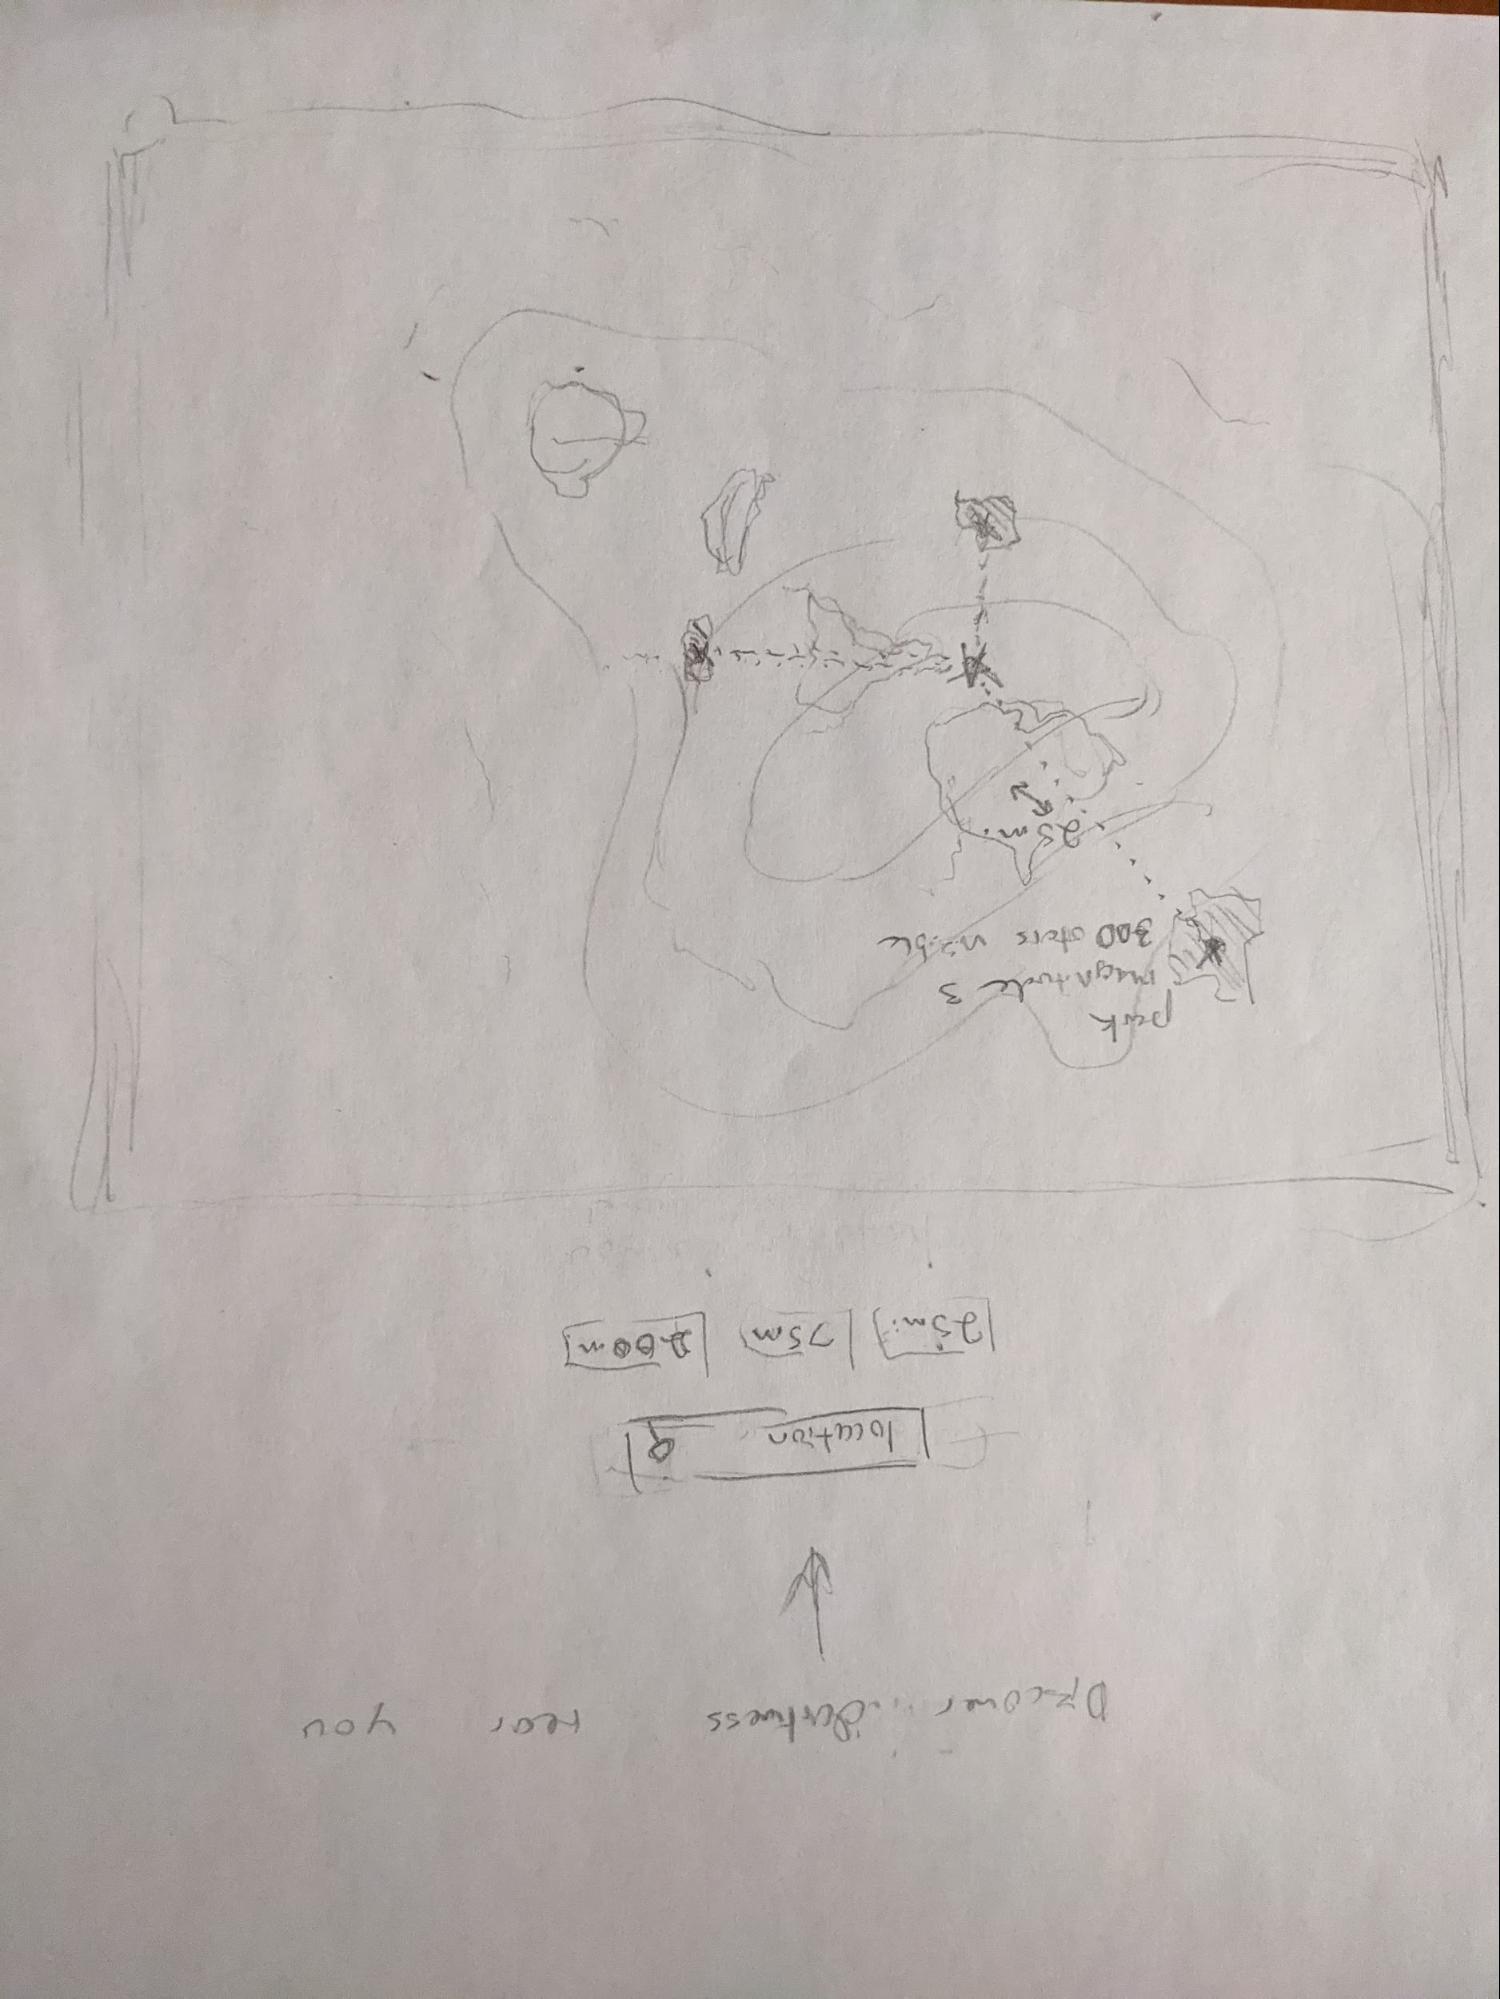 Discover darkness near you
location
25mi 75m 200m
park
magnitude 3
300 stars visible
25mi